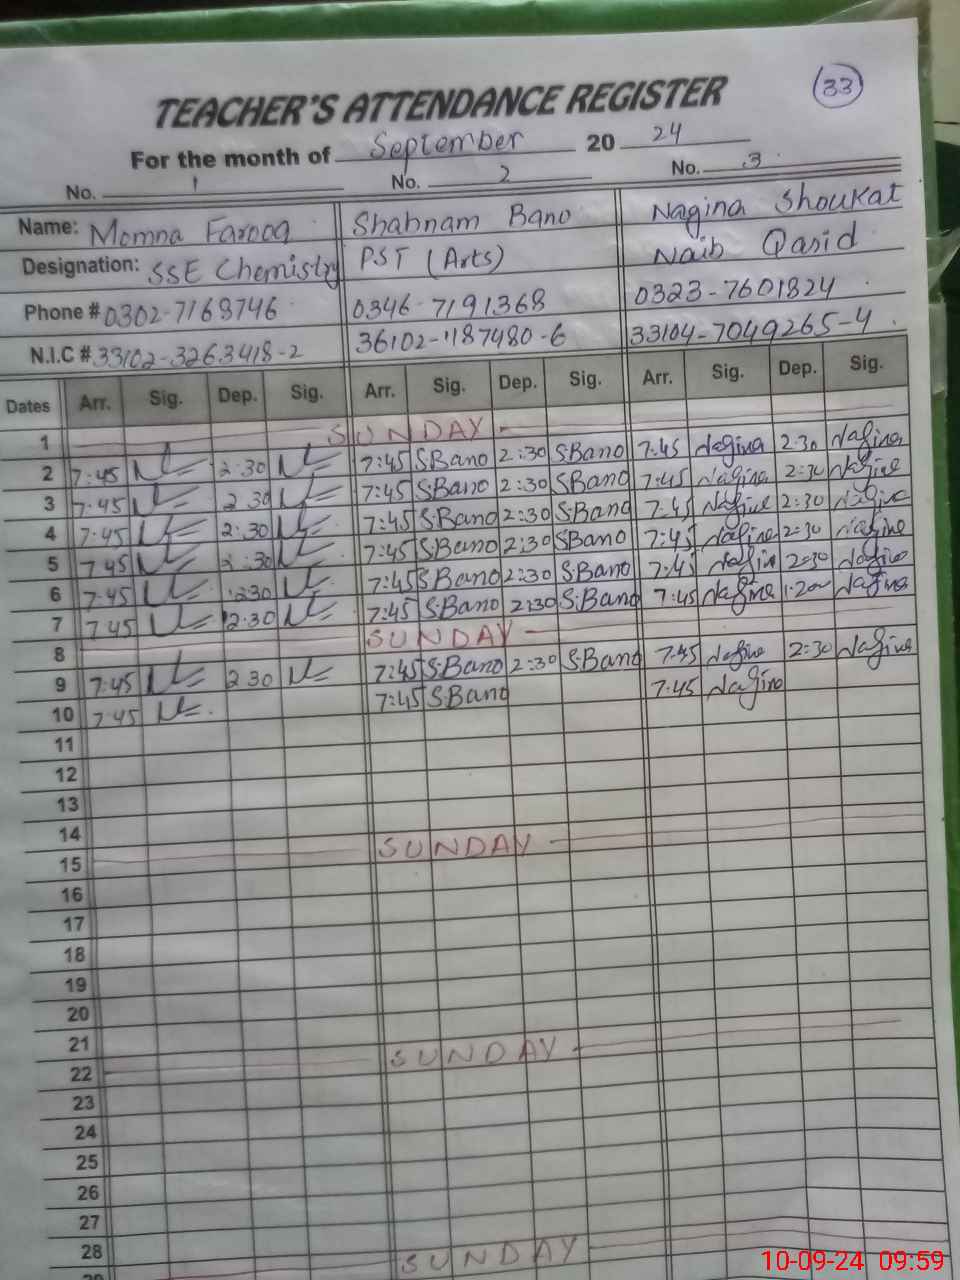 33
TEACHER'S ATTENDANCE REGISTER
For the month of September 20 24
No. 1 No. 2 No. 3
Name: Momna Farooq Shabnam Bano Nagina Shoukat
Designation: SSE Chemistry PST (Arts) Naib Qasid
Phone # 0302-7168746 0346-7191368 0323-7601824
N.I.C # 33102-3263418-2 36102-1187480-6 33104-7049265-4
Dates Arr. Sig. Dep. Sig. Arr. Sig. Dep. Sig. Arr. Sig. Dep. Sig.
1 SUNDAY
2 7:45 2:30 7:45 SBano 2:30 SBano 7:45 Nagina 2:30 Nagina
3 7:45 2:30 7:45 SBano 2:30 SBano 7:45 Nagina 2:30 Nagina
4 7:45 2:30 7:45 SBano 2:30 SBano 7:45 Nagina 2:30 Nagina
5 7:45 2:30 7:45 SBano 2:30 SBano 7:45 Nagina 2:30 Nagina
6 7:45 2:30 7:45 SBano 2:30 SBano 7:45 Nagina 2:30 Nagina
7 7:45 2:30 7:45 S.Bano 2:30 S.Bano 7:45 Nagina Nagina
8 SUNDAY
9 7:45 2:30 7:45 S.Bano 2:30 S.Bano 7:45 Nagina 2:30 Nagina
10 7:45 7:45 S.Bano 7:45 Nagina
11
12
13
14
15 SUNDAY
16
17
18
19
20
21
22 SUNDAY
23
24
25
26
27
28
SUNDAY
10-09-24 09:59